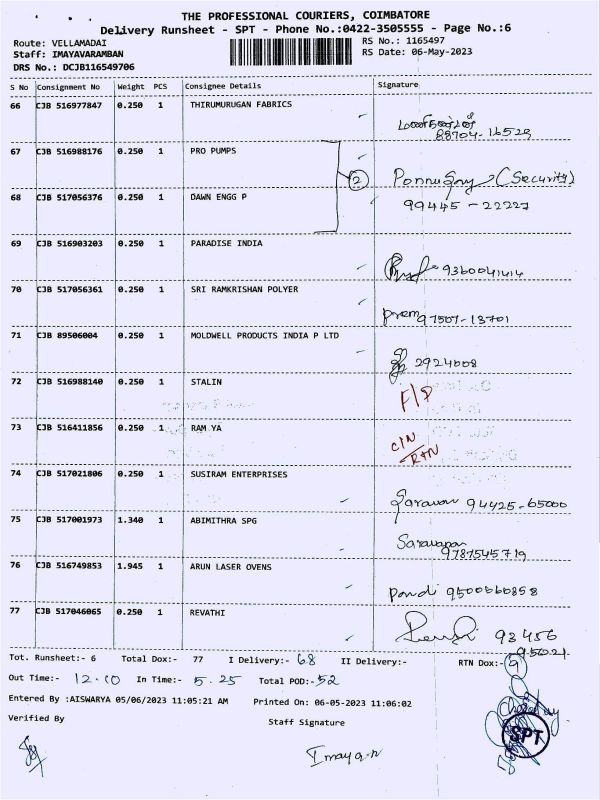 THE PROFESSIONAL COURIERS, COIMBATORE
Delivery Runsheet - SPT - Phone No.:0422-3505555 - Page No.:6
Route: VELLAMADAI RS No.: 1165497
Staff: IMAYAVARAMBAN RS Date: 06-May-2023
DRS No.: DCJB116549706
S No Consignment No Weight PCS Consignee Details Signature
66 CJB 516977847 0.250 1 THIRUMURUGAN FABRICS
88704-16529
67 CJB 516988176 0.250 1 PRO PUMPS
2 (Security)
68 CJB 517056376 0.250 1 DAWN ENGG P 99445-22227
69 CJB 516903203 0.250 1 PARADISE INDIA
9360041414
70 CJB 517056361 0.250 1 SRI RAMKRISHAN POLYER
prem 97507-13701
71 CJB 89506004 0.250 1 MOLDWELL PRODUCTS INDIA P LTD
2924008
72 CJB 516988140 0.250 1 STALIN
73 CJB 516411856 0.250 1 RAM YA
C/N
RTN
74 CJB 517021806 0.250 1 SUSIRAM ENTERPRISES
94425-65000
75 CJB 517001973 1.340 1 ABIMITHRA SPG
Saravanan
9787545719
76 CJB 516749853 1.945 1 ARUN LASER OVENS
Pandi 9500660858
77 CJB 517046065 0.250 1 REVATHI
93456
95021
Tot. Runsheet:- 6 Total Dox:- 77 I Delivery:- 68 II Delivery:- RTN Dox:- 9
Out Time:- 12.10 In Time:- 5.25 Total POD:- 52
Entered By :AISWARYA 05/06/2023 11:05:21 AM Printed On: 06-05-2023 11:06:02
Verified By Staff Signature
SPT